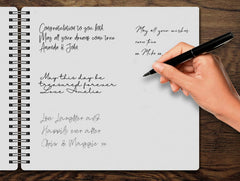 Congratulations to you both
May all your dreams come true
Amanda &
May this day be
treasured forever
Love Amelia
Laughter and
Happily ever after
Chris & Maggie xx
May all your wishes
come true